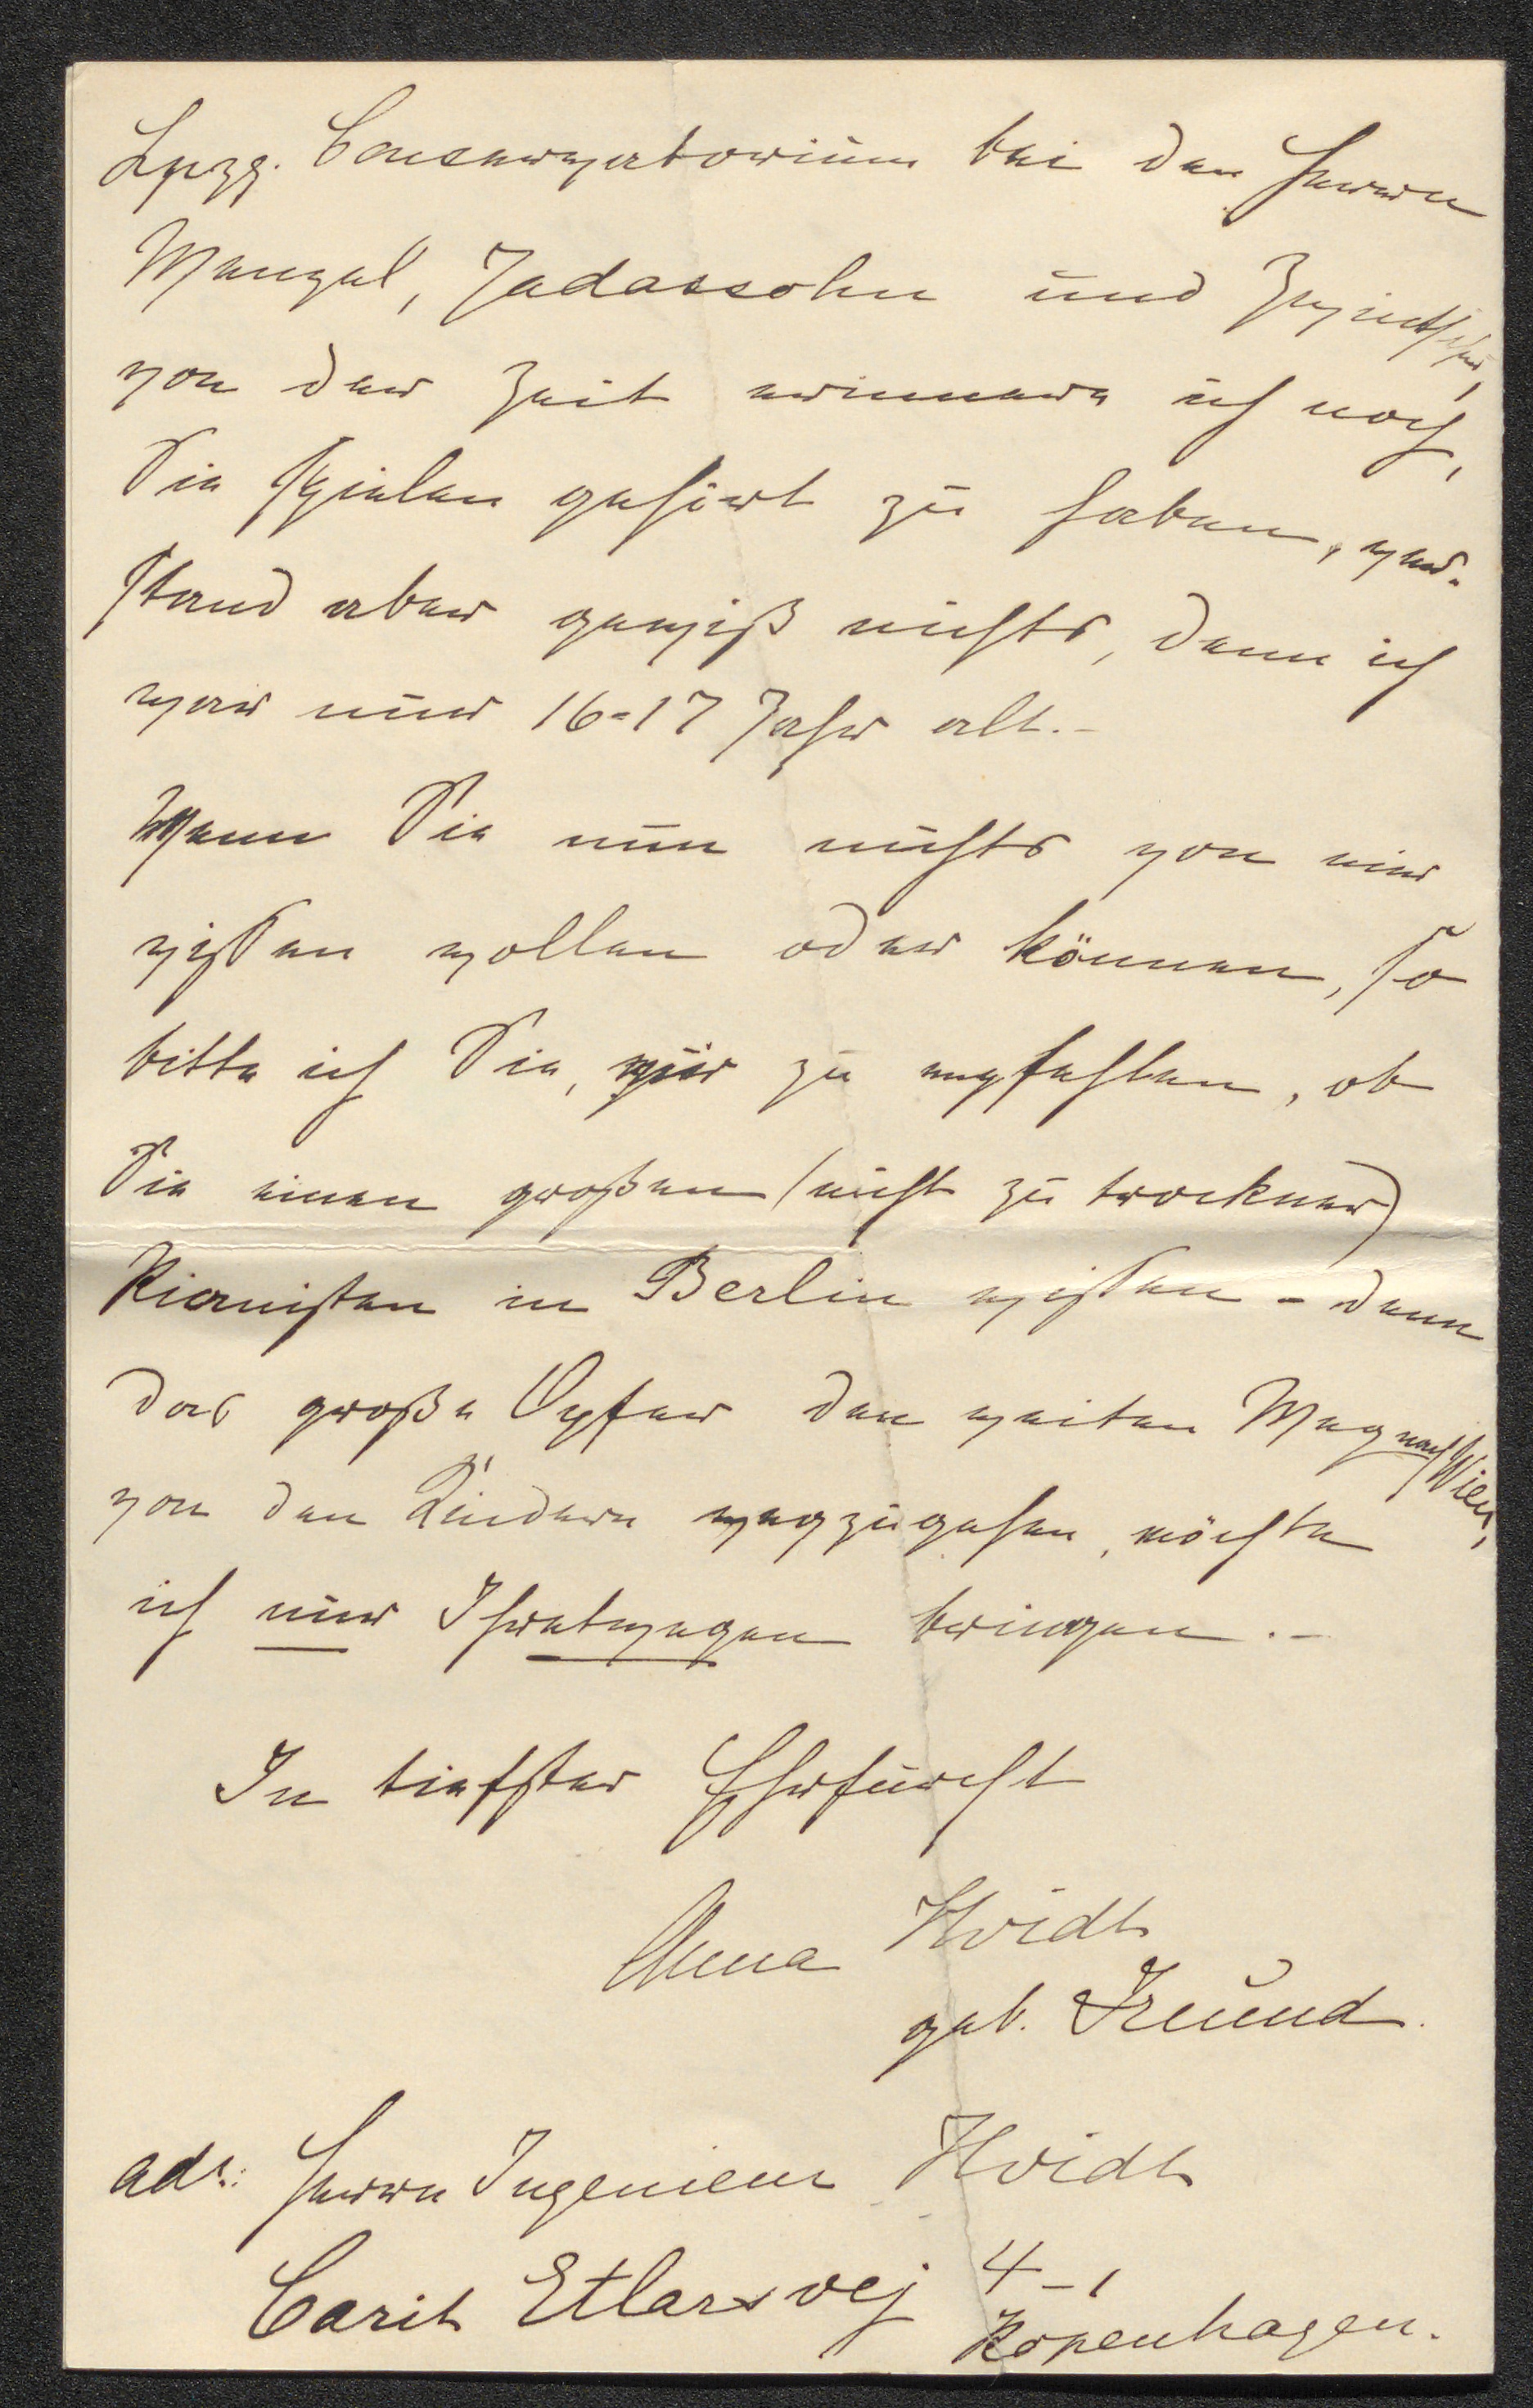 Lpzg. Conservatorium bei den Herren
Wenzel, Jadassohn und Zwintscher,
von der Zeit erinnere ich noch,
Sie spielen gehört zu haben, ver-
stand aber gewiß nichts, denn ich
war nur 16-17 Jahr alt.-
Wenn Sie nun nichts von mir
wissen wollen oder können, so
bitte ich Sie, mir zu empfehlen, ob
Sie einen großen (nicht zu trockner)
Pianisten in Berlin wissen - denn
das große Opfer den weiten Weg nach Wien,
von den Kindern wegzugehen, möchte
ich nur Ihretwegen bringen.-
In tiefster Ehrfurcht
Anna Hvidt
geb. Freund.
adr: Herrn Ingenieur Hvidt
Carit Etlarsvej 4-1
Kopenhagen.